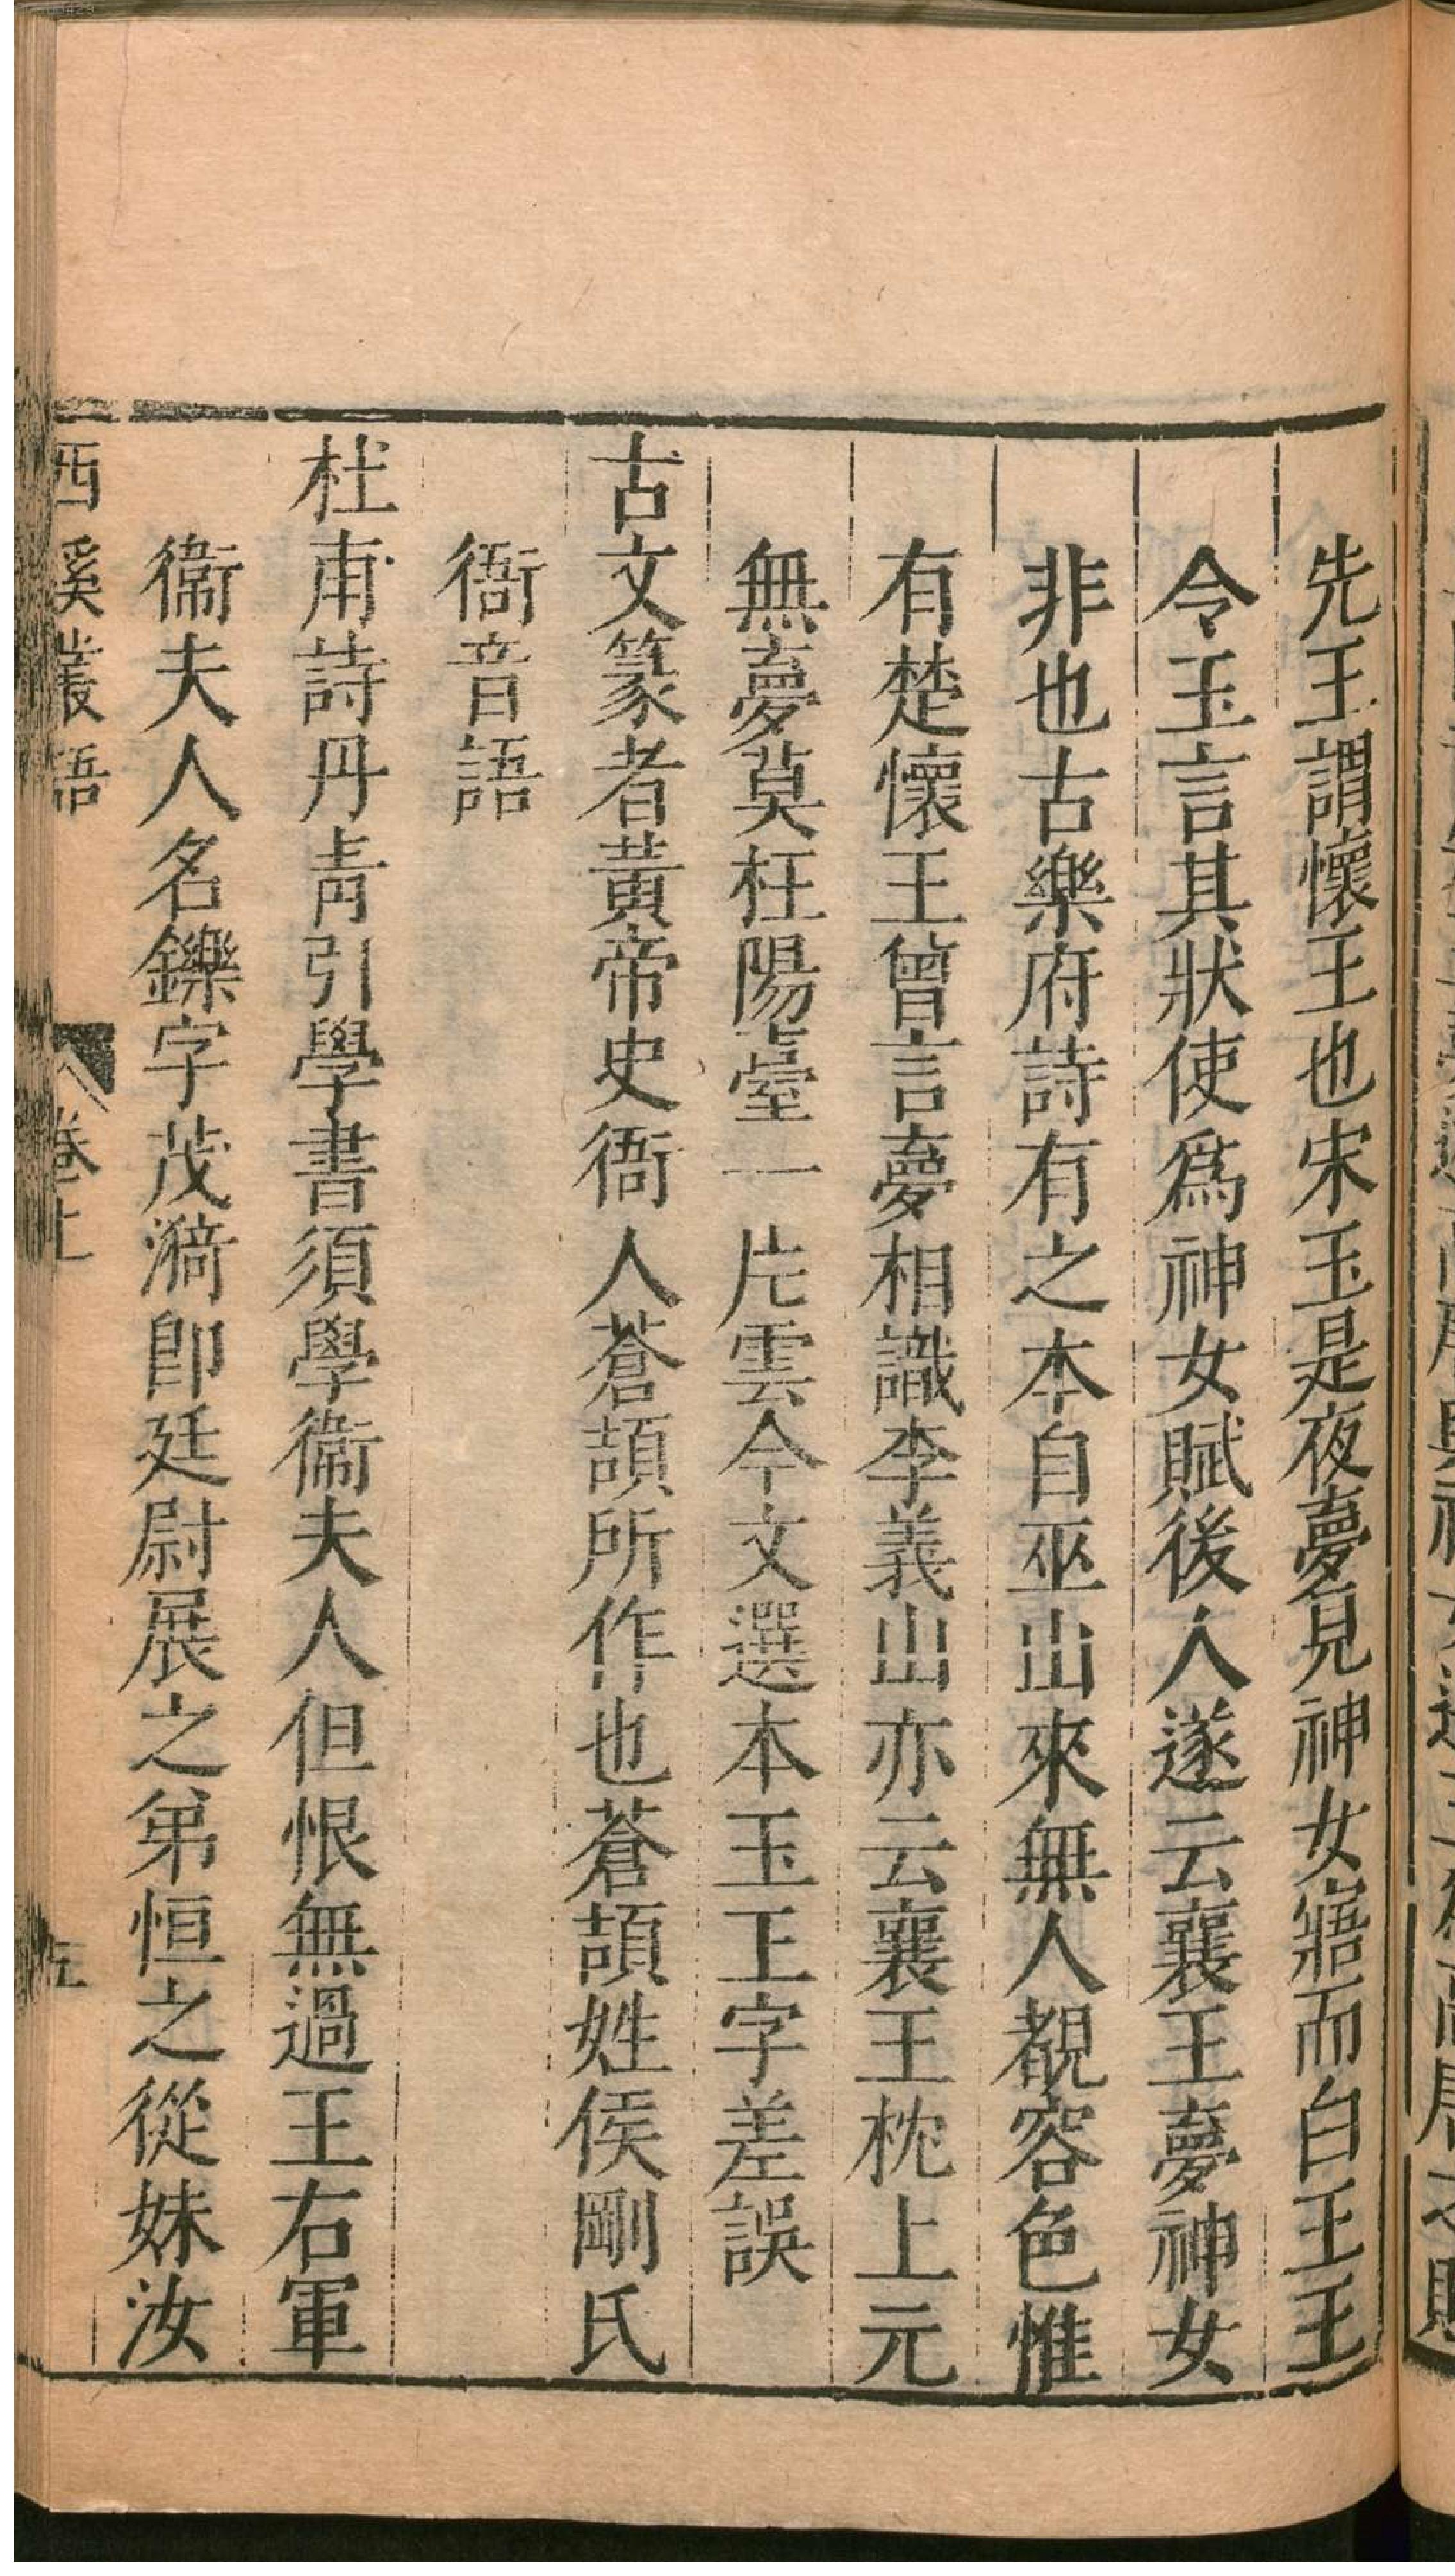 先王謂懷王也宋玉是夜夢見神女寤而白王王
令玉言其狀使爲神女賦後人遂云襄王夢神女
非也古樂府詩有之本自巫山來無人覩容色惟
有楚懷王曾言夢相識李義山亦云襄王枕上元
無夢莫枉陽臺一片雲今文選本玉王字差誤
古文篆者黃帝史衙人蒼頡所作也蒼頡姓侯剛氏
衙音語
杜甫詩丹靑引學書須學衞夫人但恨無過王右軍
衞夫人名鑠字茂漪卽廷尉展之弟恒之從妹汝
西溪叢語 卷上 五